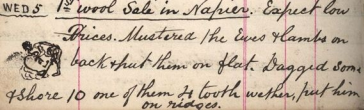 WED 5 1st wool Sale in Napier. Expect low
Prices. Mustered the Ewes & lambs on
back & put them on flat. Dagged Som
& Shore 10 one of them 4 tooth wether, put them
on ridges.